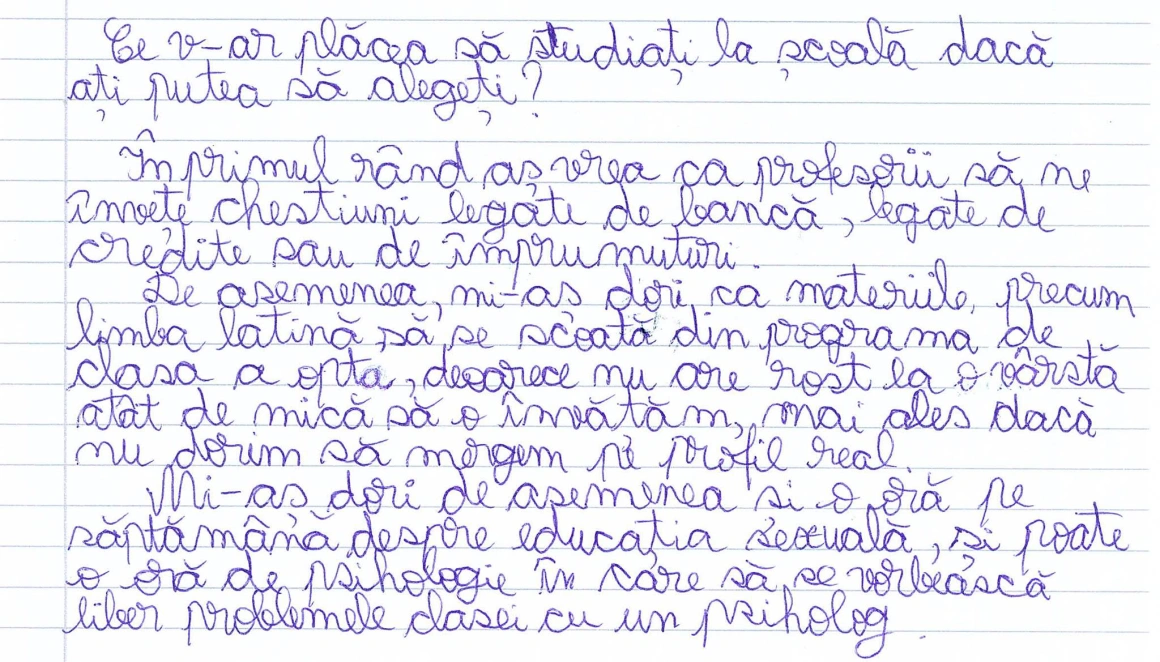 Ce v-ar plăcea să studiați la școală dacă
ați putea să alegeți?
În primul rând aș vrea ca profesorii să ne
învețe chestiuni legate de bancă, legate de
credite sau de împrumuturi.
De asemenea, mi-aș dori ca materiile, precum
limba latină, să se scoată din programa de
clasa a opta, deoarece nu are rost la o vârstă
atât de mică să o învățăm, mai ales dacă
nu dorim să mergem pe profil real.
Mi-aș dori de asemenea și o oră pe
săptămână despre educația sexuală, și poate
o oră de psihologie în care să se vorbească
liber problemele clasei cu un psiholog.